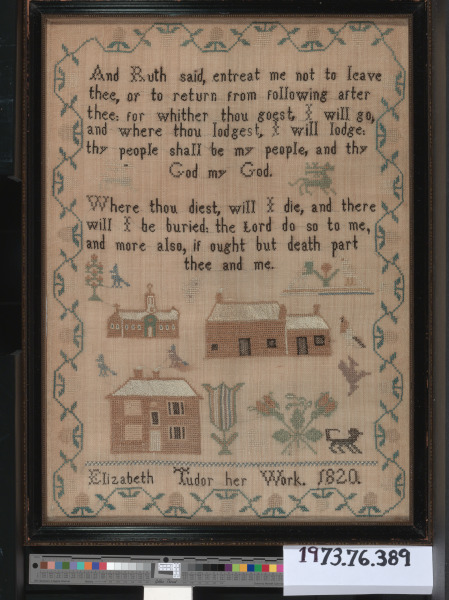 And Ruth said, entreat me not to leave
thee, or to return from following after
thee: for whither thou goest, I will go,
and where thou lodgest, I will lodge:
thy people shall be my people, and thy
God my God.
Where thou diest, will I die, and there
will I be buried: the Lord do so to me,
and more also, if ought but death part
thee and me.
Elizabeth Tudor her Work. 1820.
1973.76.389